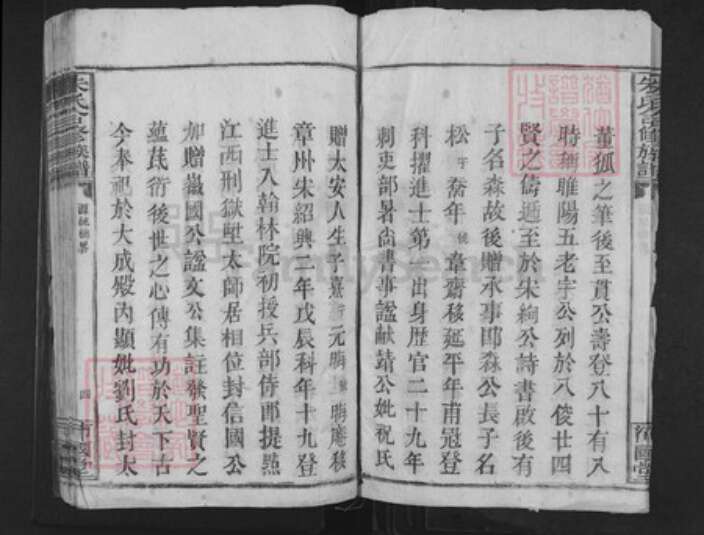 董狐之筆後至貫公壽登八十有八
時稱睢陽五老字公列於八俊廿四
賢之儔遞至於宋絢公詩書啟後有
子名森故後贈承事郎森公長子名
松字喬年號韋齋移延平年甫冠登
科擢進士第一出身歷官二十九年
刺吏部暑尚書事謚献靖公妣祝氏
贈太安人生子熹行元晦號晦庵移
章州宋紹興二年戊辰科年十九登
進士入翰林院初授兵部侍郎提㸃
江西刑獄陞太師居相位封信國公
加贈徽國公謚文公集註發聖賢之
蘊莀衍後世之心傳有功於天下古
今奉祀於大成殿內顯妣劉氏封太
朱氏合修族譜
四